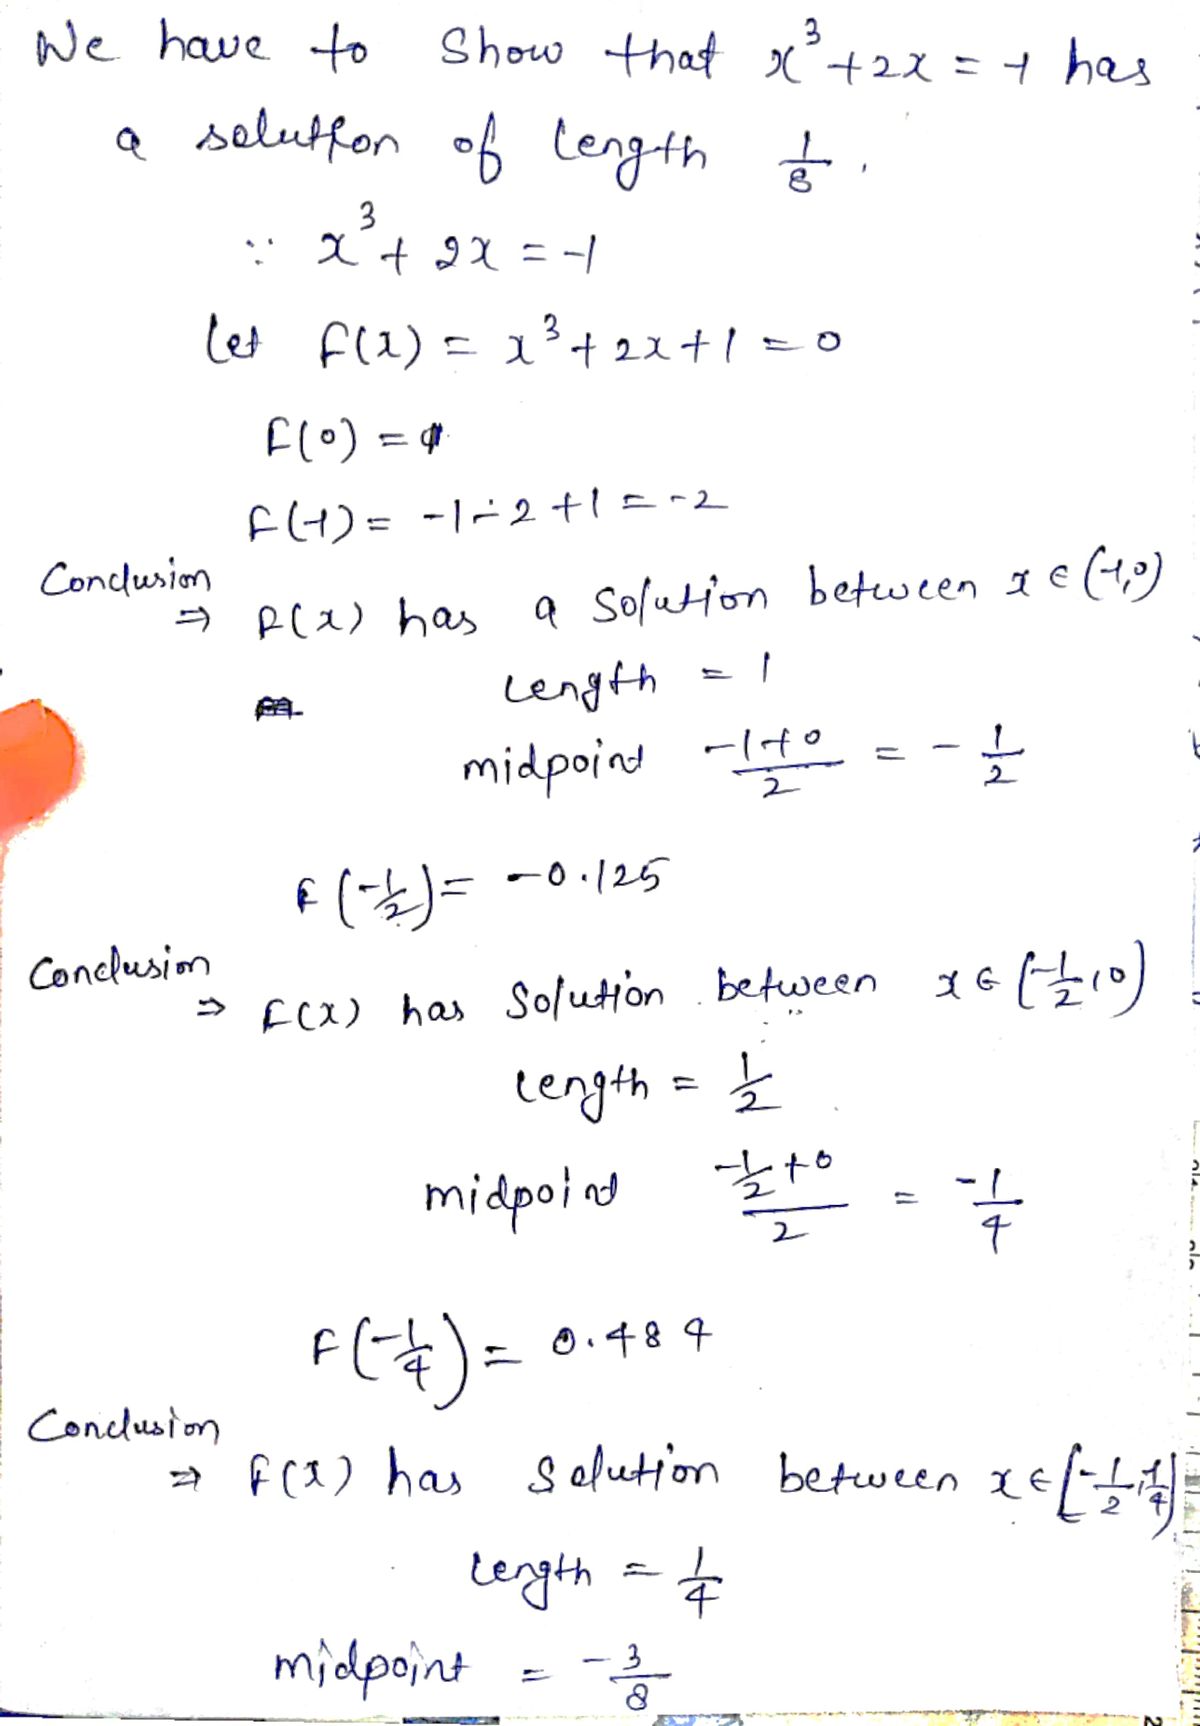 We have to Show that x³+2x = -1 has
a solution of length 1/8 .
∵ x³+ 2x = -1
Let f(x) = x³+2x+1 = 0
f(0) = 1
f(-1) = -1-2+1 = -2
Conclusion
⇒ f(x) has a Solution between x ∈ (-1,0)
Length = 1
midpoint (-1+0)/2 = - 1/2
f(-1/2) = -0.125
Conclusion
⇒ f(x) has Solution between x ∈ (-1/2,0)
Length = 1/2
midpoint (-1/2+0)/2 = -1/4
F(-1/4) = 0.484
Conclusion
⇒ f(x) has Solution between x ∈ [-1/2,-1/4]
Length = 1/4
midpoint = -3/8